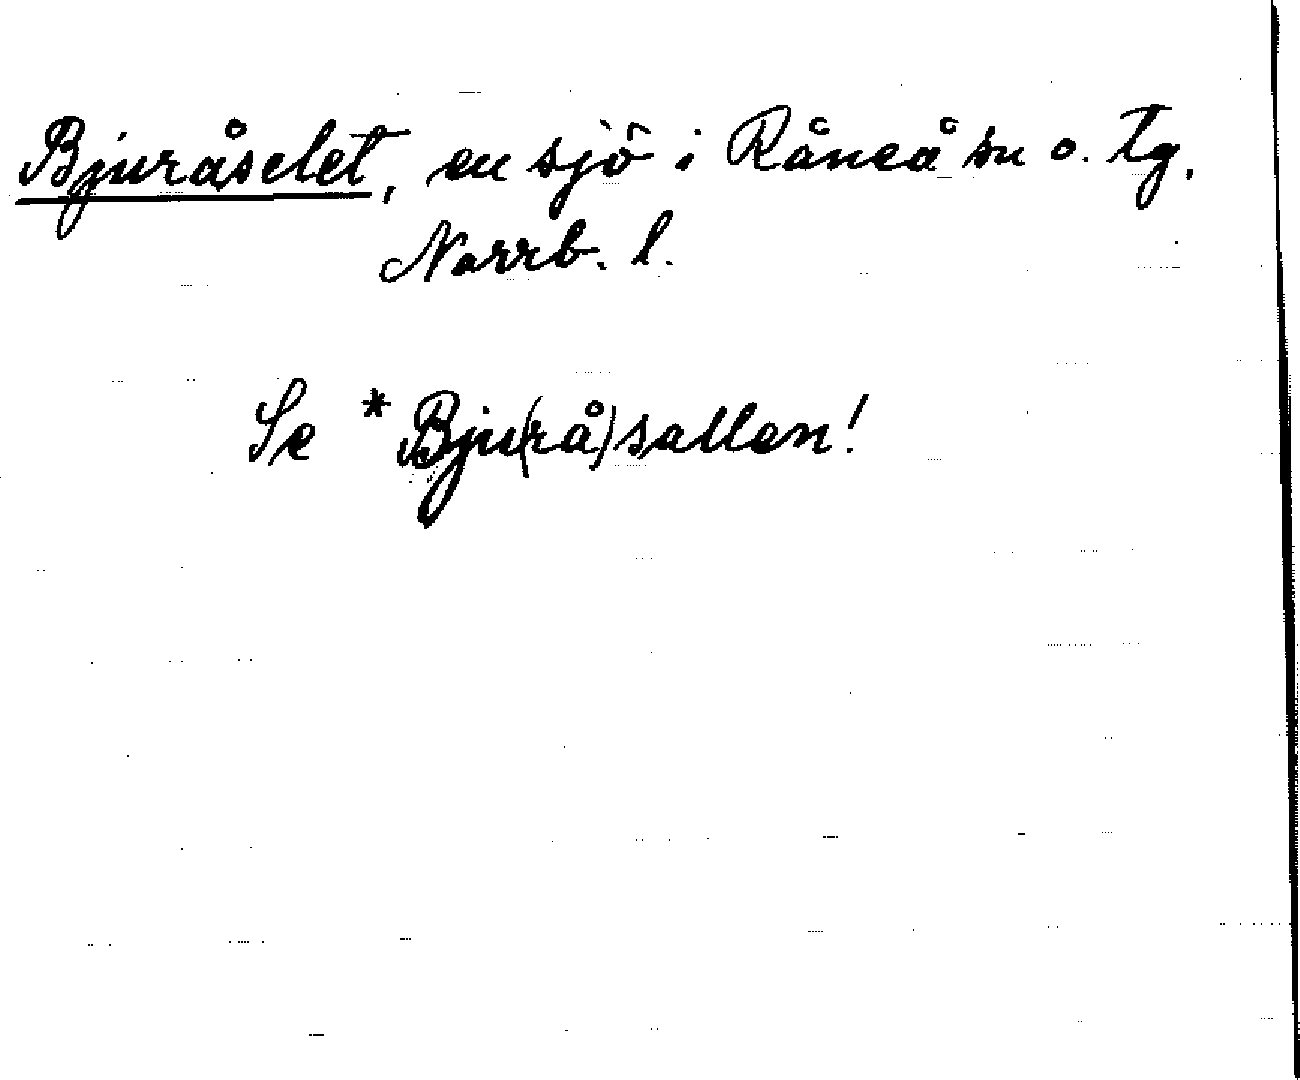 Bjuråselet, en sjö i Råneå sn o. tg.
Norrb. l.
Se *Bju(rå)sallen!